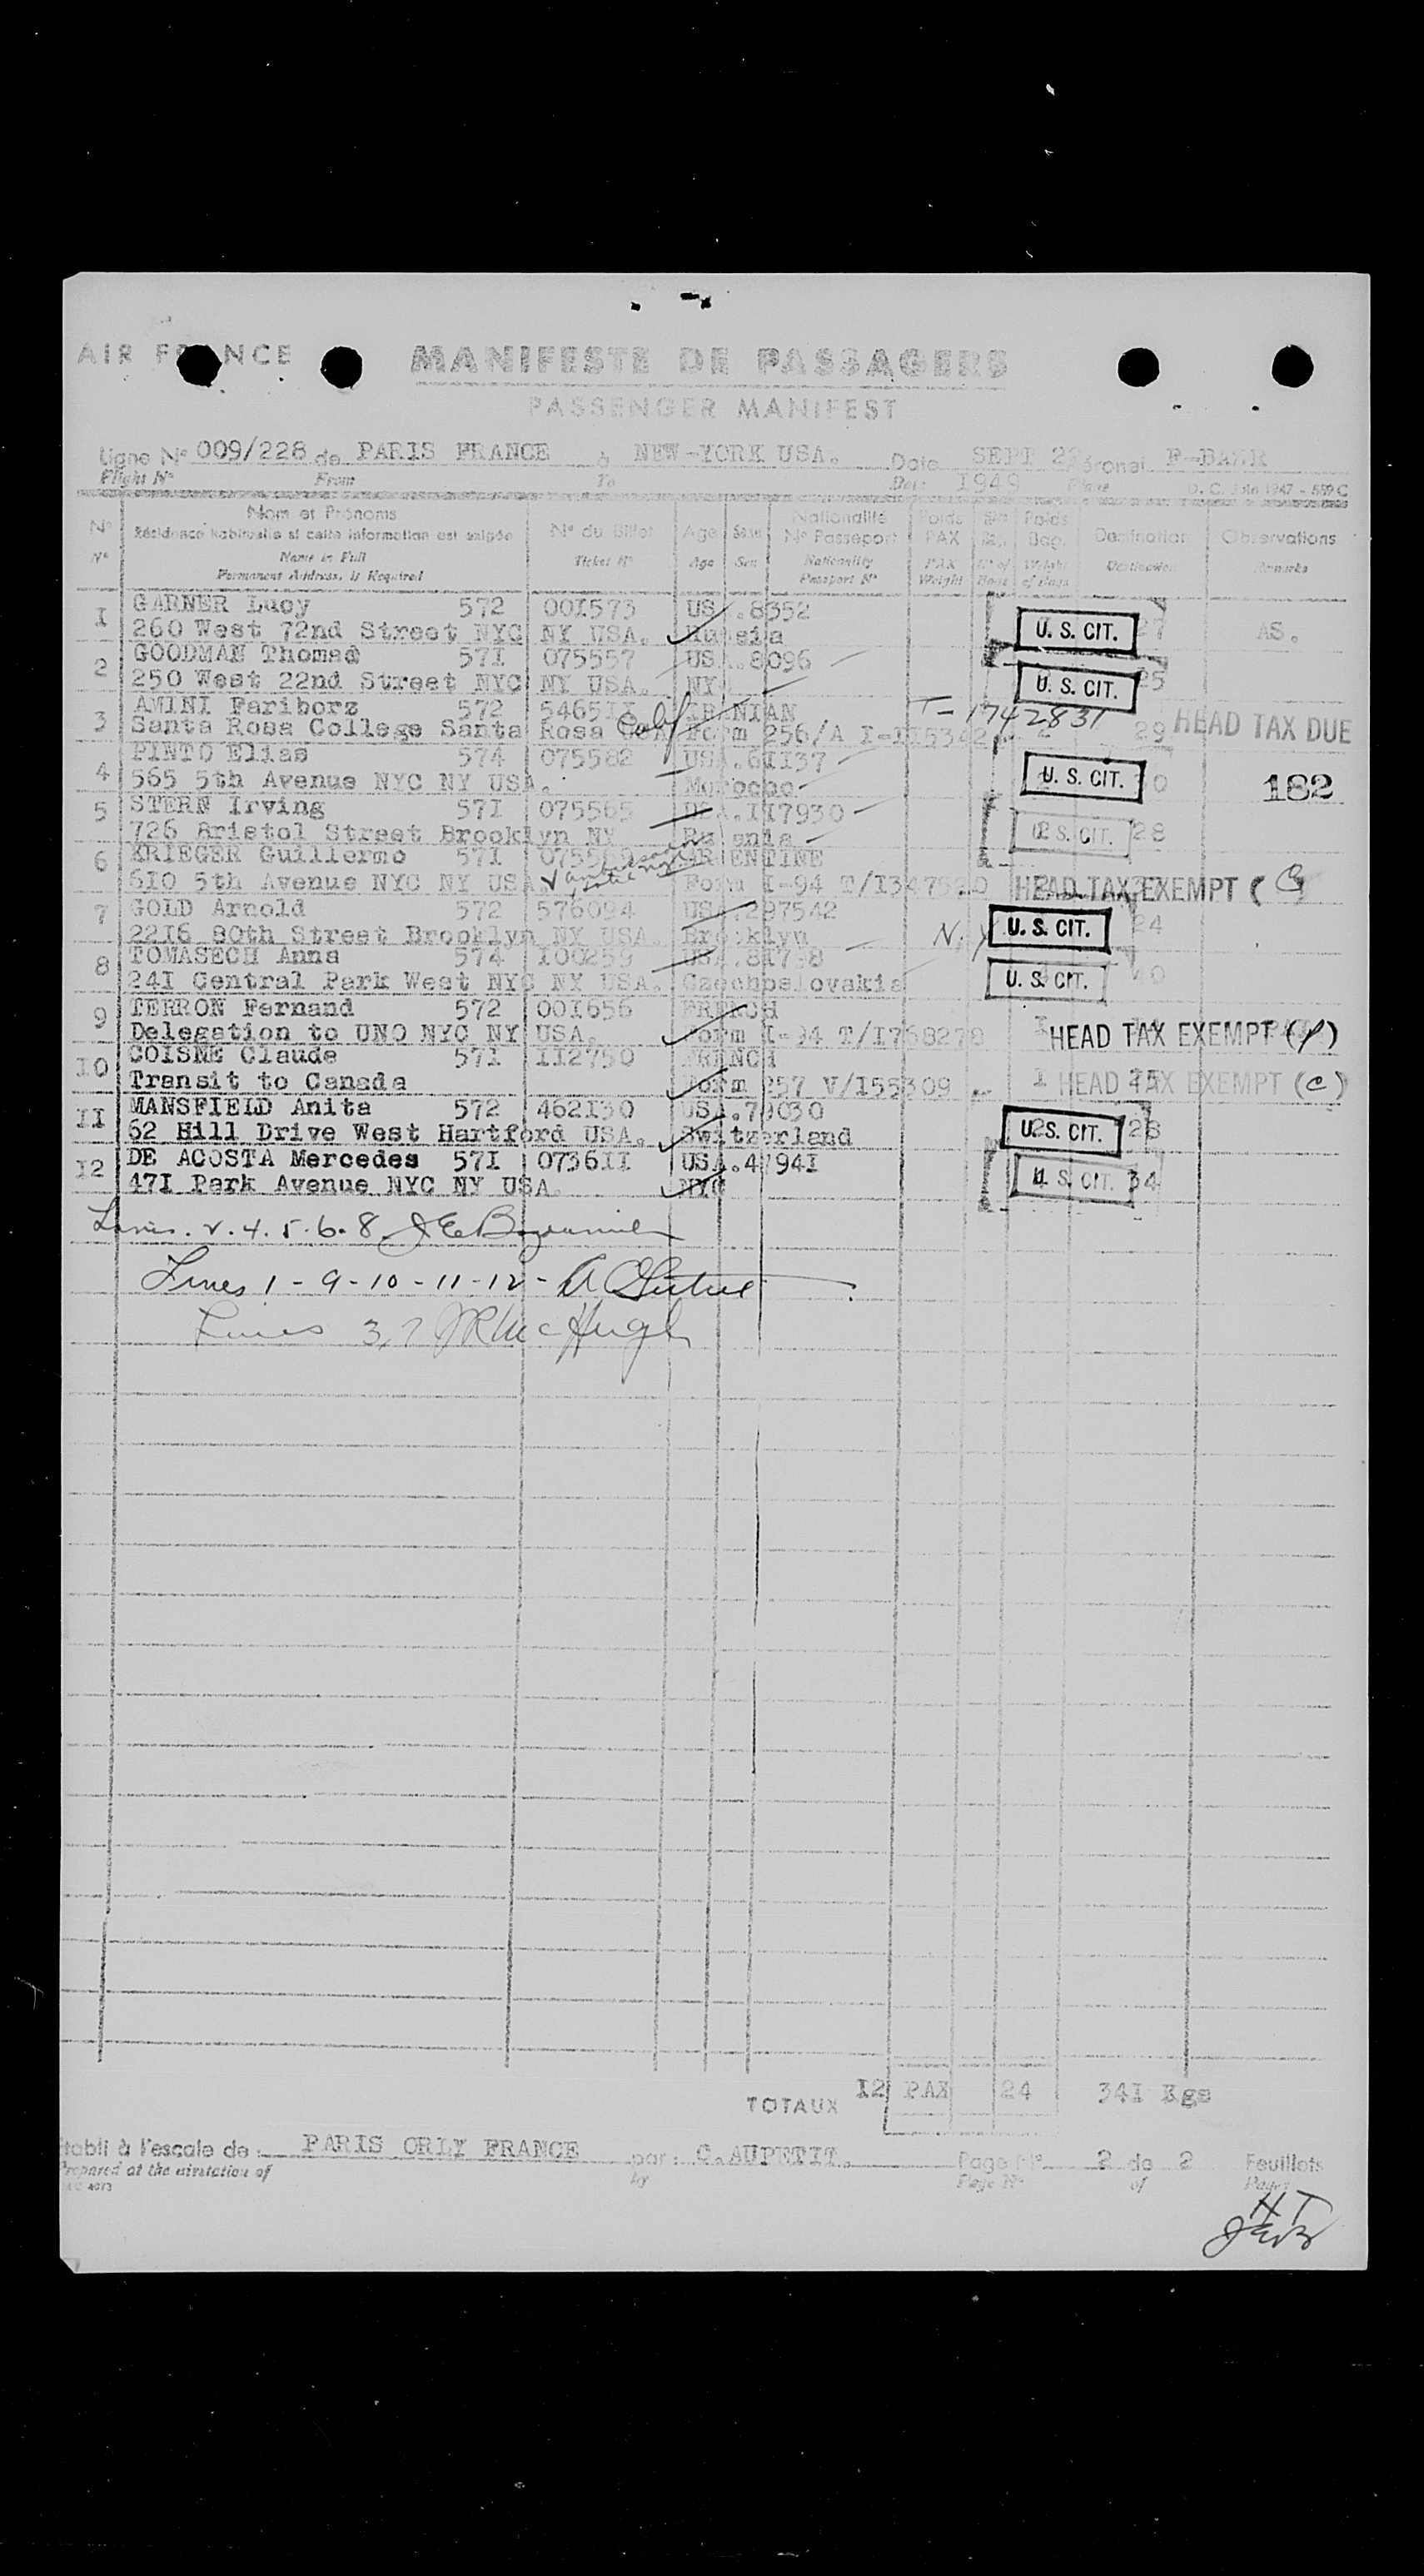 AIR FRANCE MANIFESTE DE PASSAGERS
PASSENGER MANIFEST
Ligne N° 009/228 de PARIS FRANCE à NEW-YORK USA. Date SEPT
Flight N° From To Date 1949 Plane
N° Nom et Prénoms N° du Billet Age Sexe Nationalité Poids Poids Destination Observations
Résidence habituelle si cette information est exigée N° Passeport PAX Bag.
N° Name in Full Ticket N° Age Sex Nationality PAX N° of Weight Destination Remarks
Permanent Address, is Required Passport N° Weight Bags of Bags
1 GARNER Lucy 572 001573 US .8352
260 West 72nd Street NYC NY USA. Russia U. S. CIT. 27 AS.
2 GOODMAN Thomas 571 075557 USA.8096
250 West 22nd Street NYC NY USA. NY U. S. CIT. 25
3 AMINI Fariborz 572 IRANIAN T-1742831
Santa Rosa College Santa Rosa Calif Form 256/A 29 HEAD TAX DUE
4 PINTO Elias 574 075582 USA.61137
565 5th Avenue NYC NY USA. Morocco U. S. CIT. 182
5 STERN Irving 571 075565 USA.117930
726 Bristol Street Brooklyn NY U. S. CIT. 28
6 KRIEGER Guillermo 571 ARGENTINE
610 5th Avenue NYC NY USA. Form I-94 HEAD TAX EXEMPT (
7 GOLD Arnold 572 576094 USA.297542
2216 80th Street Brooklyn NY USA. Brooklyn N.Y U. S. CIT. 24
8 TOMASECH Anna 574 100259
241 Central Park West NYC NY USA. Czechoslovakia U. S. CIT. 40
9 TERRON Fernand 572 001656 FRENCH
Delegation to UNO NYC NY USA. Form I-94 T/1768278 HEAD TAX EXEMPT
10 COISNE Claude 571 112750 FRENCH
Transit to Canada Form 257 V/155309 1 HEAD TAX EXEMPT (C)
11 MANSFIELD Anita 572 462130 USA.79030
62 Hill Drive West Hartford USA. Switzerland U. S. CIT.
12 DE ACOSTA Mercedes 571 073611 USA.47941
471 Park Avenue NYC NY USA NYC U. S. CIT. 34
4. 5. 6. 8
Lines 1 - 9 - 10 - 11 - 12 -
Lines 3, 7 JR McHugh
TOTAUX 12 PAX 24 341 Kgs
Etabli à l'escale de : PARIS ORLY FRANCE par : C.AUPETIT. Page N° 2 de 2 Feuillets
Prepared at the airstation of by Page N° of Pages
HT